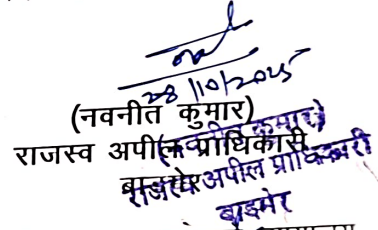 28/10/2025
(नवनीत कुमार)
राजस्व अपील प्राधिकारी
बाड़मेर
(नवनीत कुमार)
राजस्व अपील प्राधिकारी
बाड़मेर